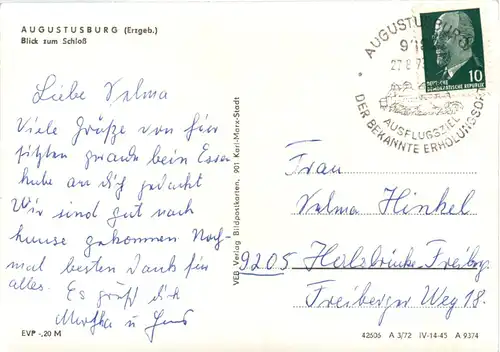 AUGUSTUSBURG (Erzgeb.)
Blick zum Schloß
Liebe Velma
Viele Grüße von hier
sitzten gerade beim Essen
habe an dich gedacht
Wir sind gut nach
hause gekommen Noch-
mal besten Dank für
alles. Es grüßt dich
Martha u
EVP -,20 M
VEB Verlag Bildpostkarten, 901 Karl-Marx-Stadt
AUGUSTUSBURG
27.8.7
AUSFLUGSZIEL
DER BEKANNTE ERHOLUNGSORT
10
DEUTSCHE
DEMOKRATISCHE REPUBLIK
Frau
Velma Hinkel
9205 Halsbrücke-Freiberg
Freiberger Weg 18.
42606 A 3/72 IV-14-45 A 9374